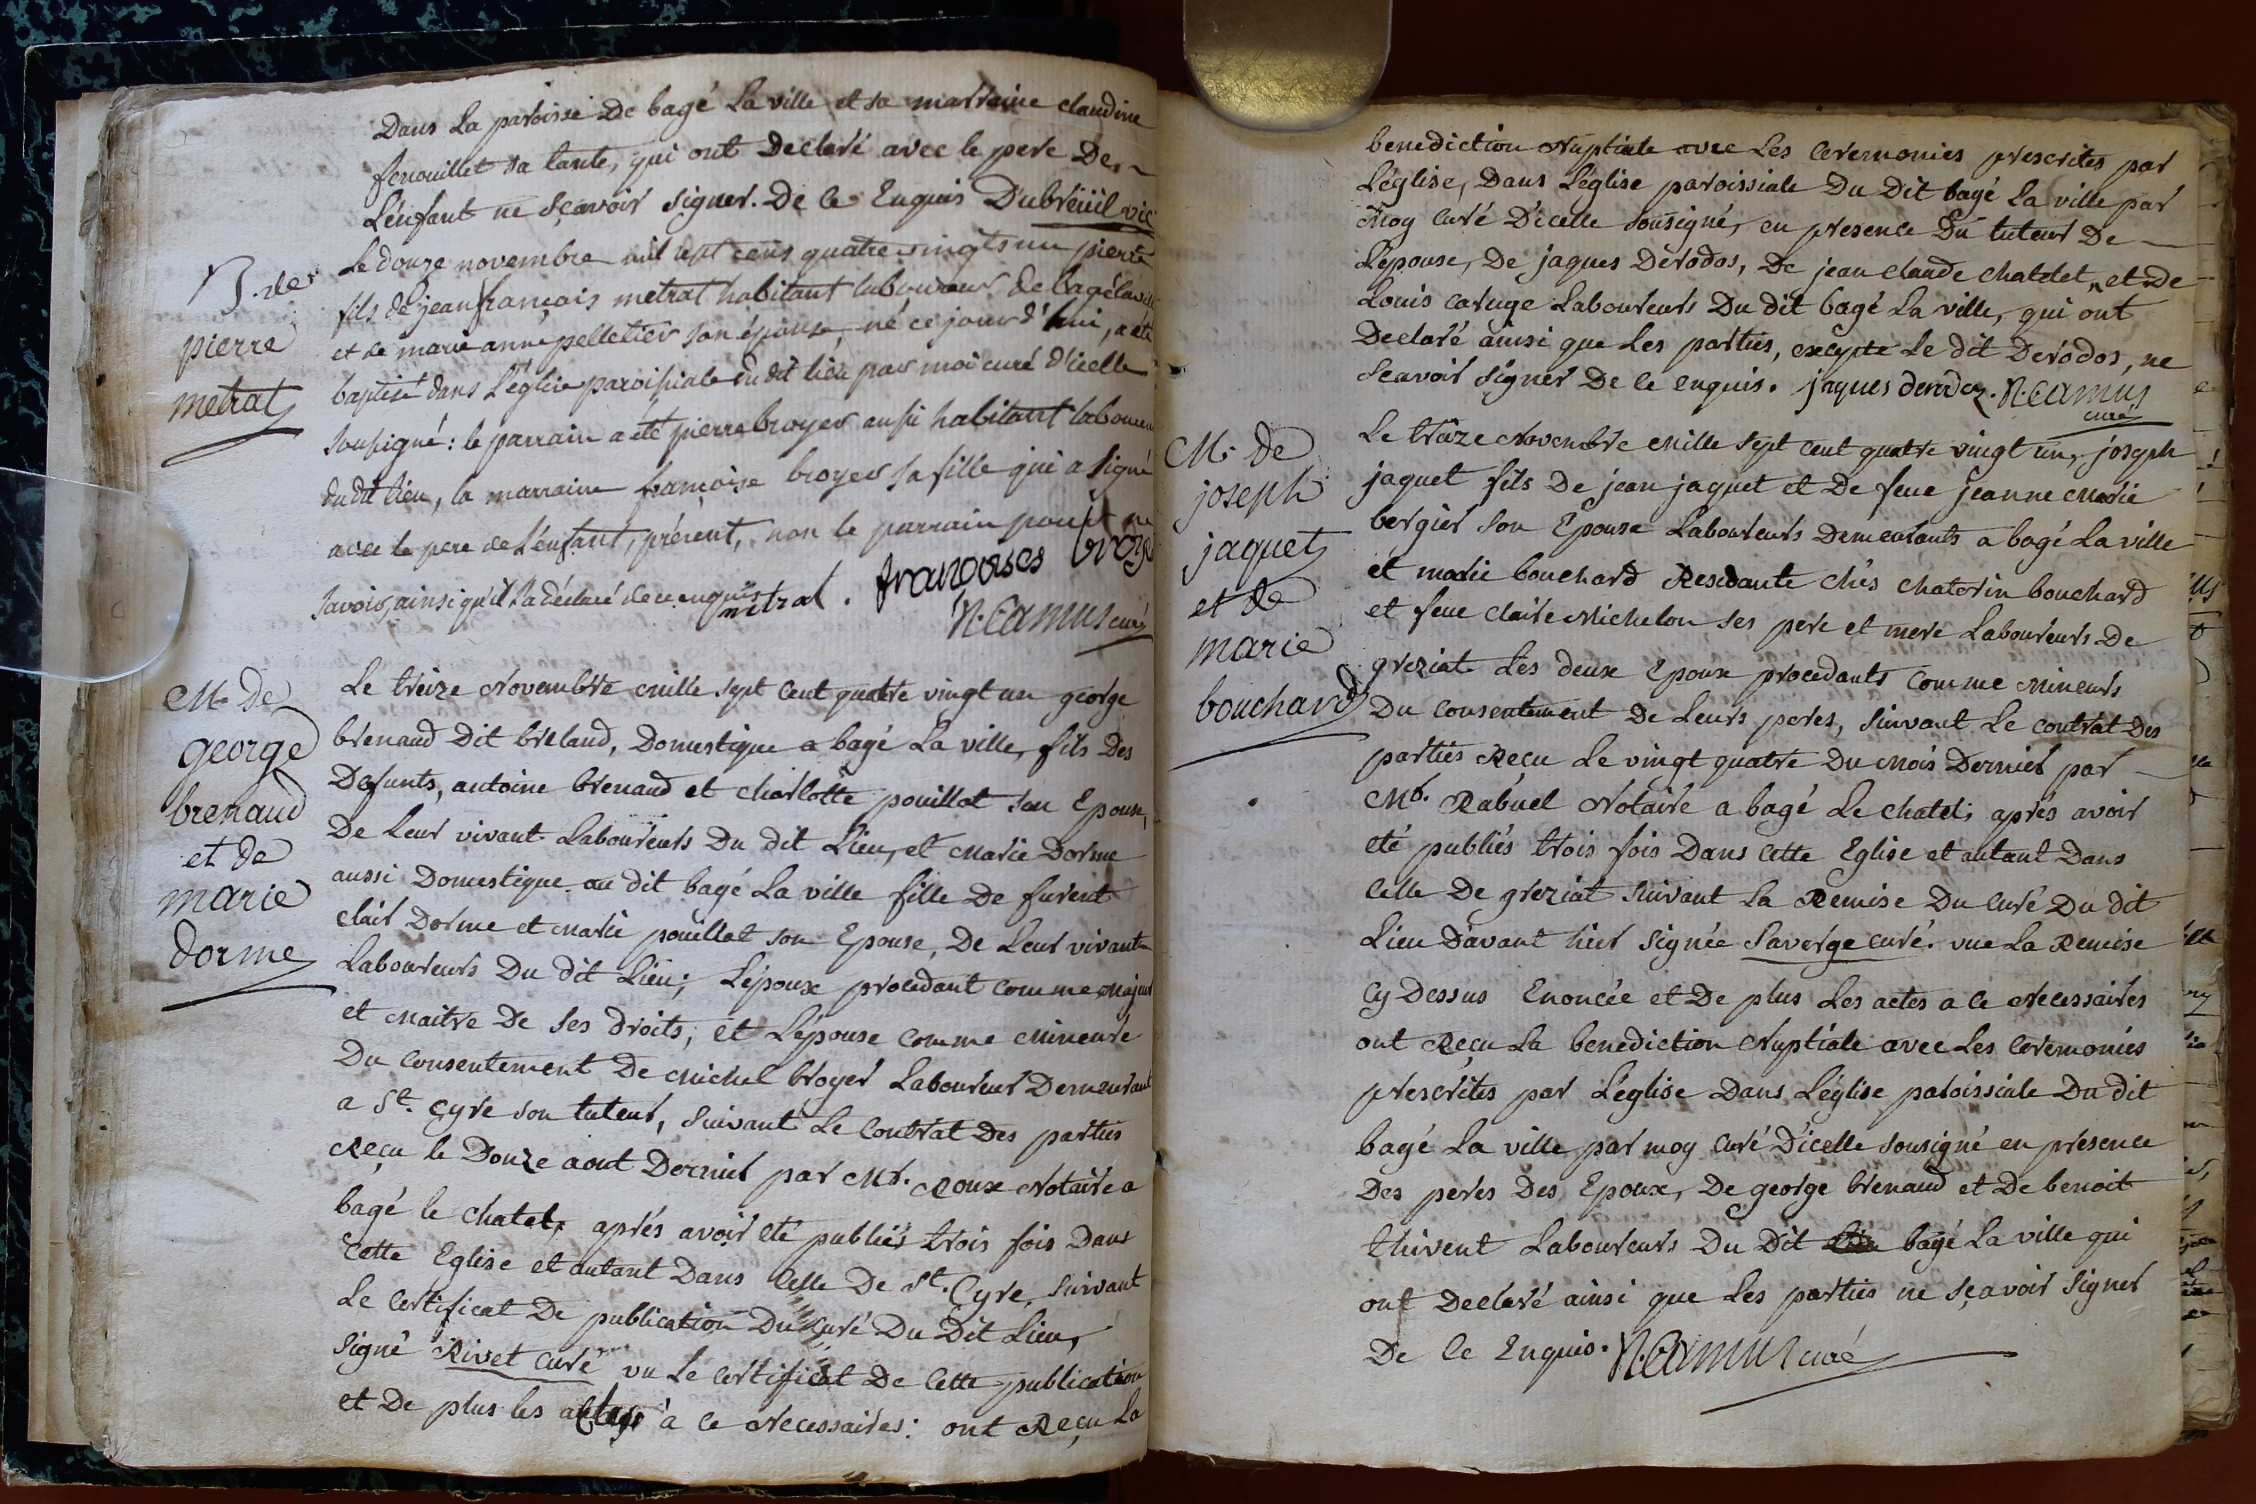 Dans la paroisse De bagé La ville et sa marraine claudine
fenouillet sa tante, qui ont Declaré avec le pere De
L'enfant ne sçavoir signer. De ce Enquis Dubreüil vic
B. de
pierre
metrat
Le douze novembre mil sept cens quatre vingts un pierre
fils de jean françois metrat habitant laboureur de bagé la ville
et de marie anne pelletier son épouse, né ce jour d'hui, a été
baptisé dans L'église paroissiale du dit lieu par moi curé d'icelle
soussigné: le parrain a été pierre broyer aussi habitant laboureur
du dit lieu, la marraine françoise broyer sa fille qui a signé
avec le pere de L'enfant, présent, non le parrain pour ne
savoir, ainsi qu'il l'a déclaré de ce enquis
metrat. francoises broye
N. CAMUS curé
M. de
george
brenaud
et de
marie
dorme
Le treize Novembre mille sept cent quatre vingt un george
brenaud Dit breland, Domestique a bagé La ville, fils Des
Defunts, antoine brenaud et charlotte pouillat son Epouse,
De Leur vivant Laboureurs Du dit Lieu, et Marie Dorme
aussi Domestique au dit bagé La ville fille De furent
clair Dorme et Marie pouillat son Epouse, De Leur vivant
Laboureurs Du dit Lieu; L'époux procedant comme Majeur
et Maitre De ses Droits; et L'épouse comme Mineure
Du consentement De Michel broyer Laboureur Demeurant
a St. Cyre son tuteur, suivant Le Contrat Des parties
Reçu le Douze aout Dernier par Mr. Roux Notaire a
bagé le chatel, aprés avoir eté publiés trois fois Dans
cette Eglise et autant Dans celle De St. Cyre, suivant
Le Certificat De publication Du curé Du Dit Lieu,
signé Rivet curé vu Le certificat De cette publication
et De plus les actes à ce Necessaires: ont Reçu La
benediction Nuptiale avec Les ceremonies prescrites par
L'église, Dans L'église paroissiale Du Dit bagé La ville par
Moy curé D'icelle sousigné, en presence Du tuteur De
L'épouse, De jaques Derodos, De jean claude chatelet, et De
Louis caruge Laboureurs Du dit bagé La ville, qui ont
Declaré ainsi que Les parties, excepté Le dit Derodos, ne
Scavoir signer De ce enquis. jaques derodoz. N. CAMUS
curé
M. De
joseph
jaquet
et de
marie
bouchard
Le treize Novembre Mille sept cent quatre vingt un, joseph
jaquet fils De jean jaquet et De feue jeanne Marie
bergier son Epouse Laboureurs Demeurants a bagé La ville
et marie bouchard Residante chés chaterin bouchard
et feue claire Michelon ses pere et mere Laboureurs De
greziat Les deux Epoux procedants comme Mineurs
Du consentement De Leurs peres, suivant Le contrat Des
parties Reçu Le vingt quatre Du Mois Dernier par
Mr. Rabuel Notaire a bagé Le chatel; aprés avoir
eté publiés trois fois Dans cette Eglise et autant Dans
celle De greziat suivant La Remise Du curé Du dit
Lieu D'avant hier signée Saverge curé. vue La Remise
Cy Dessus Enoncée et De plus Les actes a ce Necessaires
ont Reçu La benediction Nuptiale avec Les ceremonies
prescrites par L'église Dans L'église paroissiale Du dit
bagé La ville par moy curé D'icelle sousigné en presence
Des peres Des Epoux, De george brenaud et De benoit
thivent Laboureurs Du Dit bagé La ville qui
ont Declaré ainsi que Les parties ne sçavoir signer
De Ce Enquis. N. CAMUS curé